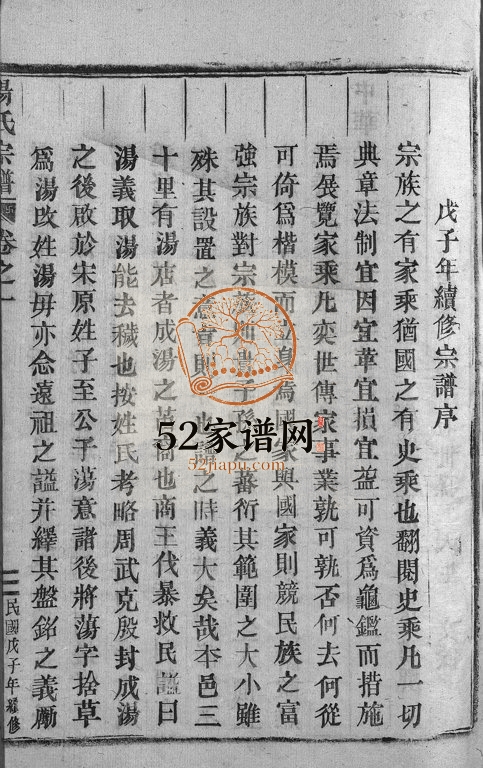 戊子年續修宗譜序
宗族之有家乘猶國之有史乘也翻閱史乘凡一切
典章法制宜因宜革宜損宜益可資爲龜鑑而措施
焉展覽家乘凡奕世傳家事業孰可孰否何去何從
可倚爲楷模而立身爲國家與國家則競民族之富
強宗族對宗族則 子孫之蕃衍其範圍之大小雖
殊其設置之意 則 也譜之時義大矣哉本邑三
十里有湯店者成湯之 裔也商王伐暴救民諡曰
湯義取湯能去穢也按姓氏考略周武克殷封成湯
之後啟於宋原姓子至公子蕩意諸後將蕩字捨草
爲湯改姓湯毋亦念遠祖之諡并繹其盤銘之義勵
湯氏宗譜
卷之一
二
民國戊子年續修
52家谱网
52jiapu.com